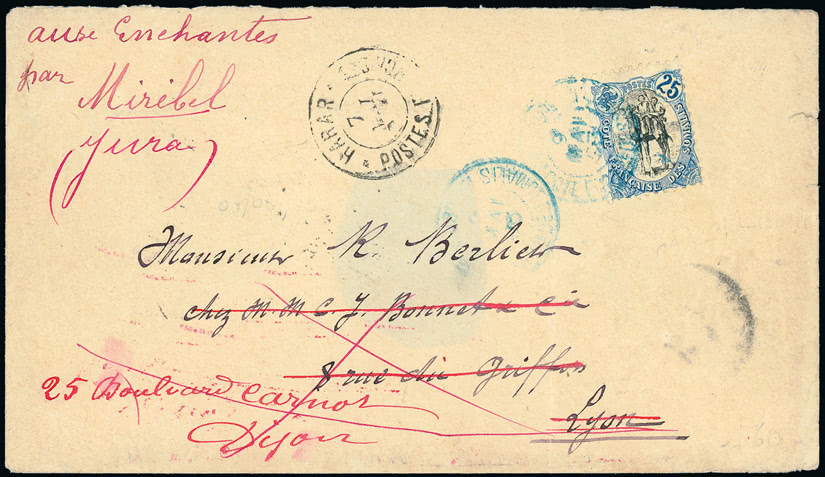 ause Enchantes
par
Mirébel
(Jura)
HARAR
POSTES
7
25
POSTES
CÔTE FRANÇAISE DES SOMALIS
MAI
SOMALIS
Monsieur R. Berliet
chez M. M. C. J. Bonnet & Cie
8 rue du Griffon
Lyon
25 Boulevard Carnot
Dijon